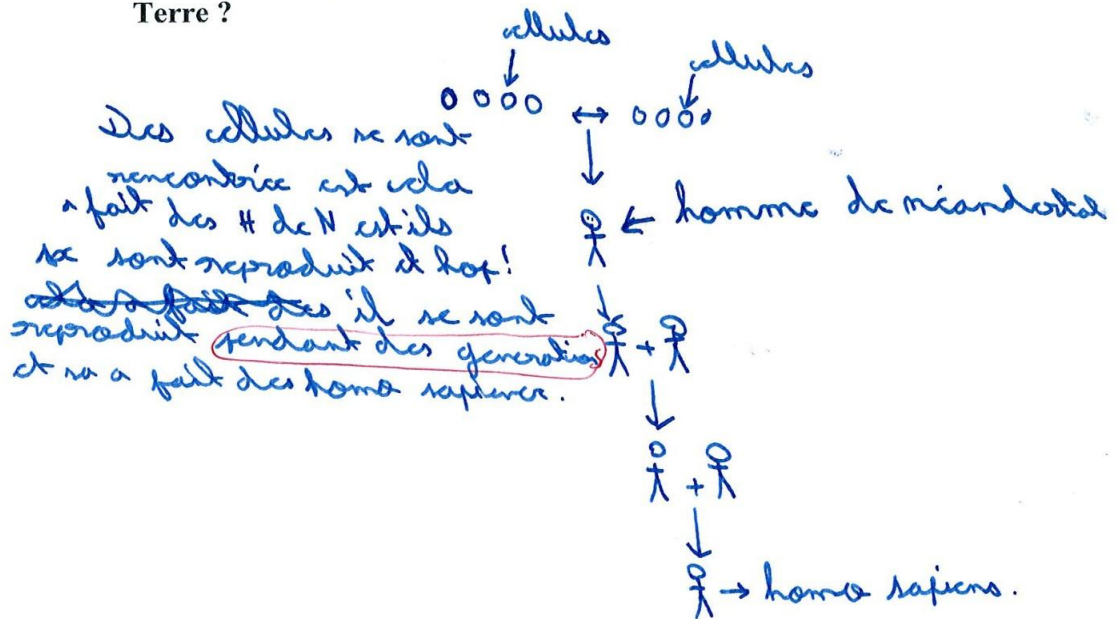 Terre ?
cellules
cellules
Des cellules se sont
rencontrée est cela
a fait des H de N est ils
se sont reproduit et hop!
cela a fait des il se sont
reproduit pendant des generations
et sa a fait des homo sapience.
homme de néandertal
homo sapiens.